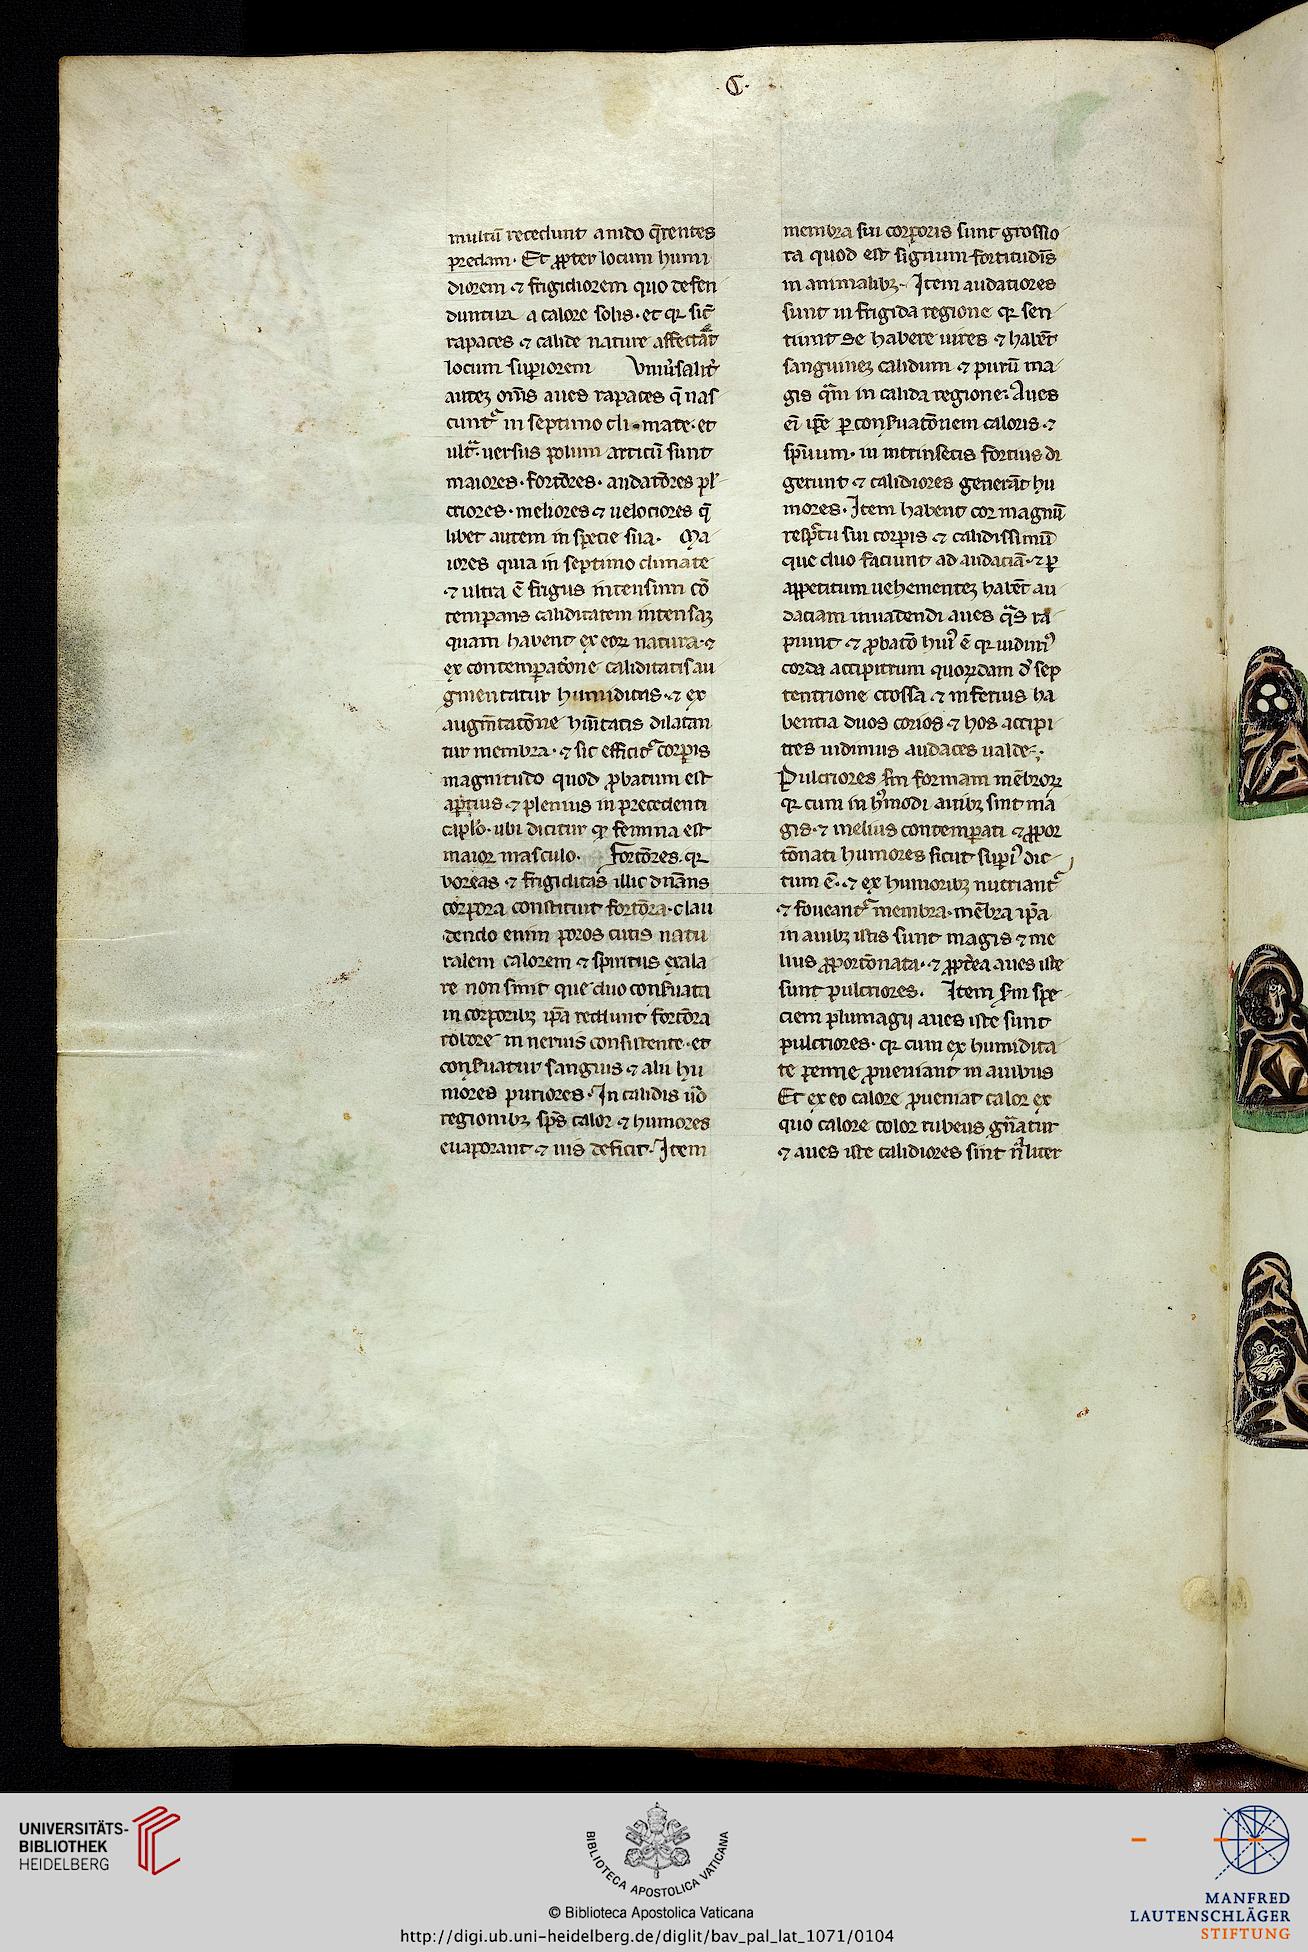 C.
multū recedunt a nido q̄rentes
predam. Et ꝓpter locum humi
diorem ⁊ frigidiorem quo defen
duntur a calore solis. et qꝛ sic̄
rapaces ⁊ calide nature affectāt
locum suꝑiorem Vniu͛salit͛
autez om̄s aues rapaces q̄ nas
cunt᷑ in septimo cli-mate. et
ultᷓ. uersus polum articū sunt
maiores. fortōres. audatōres pl᷒
criores. meliores ⁊ uelociores q̄
libet autem in specie sua. Ma
iores quia in septimo climate
⁊ ultra ē frigus intensum cō
temperans caliditatem intensaꝫ
quam habent ex eoꝝ natura. ⁊
ex contemꝑatōne caliditatis au
gmentatur humiditas. ⁊ ex
augm̄tatōne hūitatis dilatan
tur membra. ⁊ sic efficit᷑ corꝑis
magnitudo quod ꝓbatum est
aꝑtius ⁊ plenius in precedenti
cap̄lo. ubi dicitur qꝫ femina est
maior masculo. Fortōres. qꝛ
boreas ⁊ frigiditas illic dn̄ans
corpora constituit fortōra. clau
dendo enim poros cutis natu
ralem calorem ⁊ spiritus exala
re non sinit que duo conẜuata
in corporibꝫ ip̄a reddunt fortōra
robore in neruis consistente. et
conẜuatur sanguis ⁊ alii hu
mores puriores. In calidis u͛o
regionibꝫ sp̄s calor ⁊ humores
euaporant ⁊ uis deficit. Item
membra sui corporis sunt grossio
ra quod est signum fortitudīs
in animalibꝫ. Item audatiores
sunt in frigida regione qꝛ sen
tiunt se habere uires ⁊ habēt
sanguineꝫ calidum ⁊ purū ma
gis q̄m in calida regione: Aues
eī ip̄e ꝑ conẜuatōnem caloris. ⁊
sp̄uum. in intrinsecis fortius di
gerunt ⁊ calidiores generāt hu
mores. Item habent cor magnū
resp̄ctu sui corꝑis ⁊ calidissimū
que duo faciunt ad audaciā. ⁊ ꝑ
appetitum uehementeꝫ habēt au
daciam inuadendi aues q̄s ra
piunt ⁊ ꝓbatō hui᷒ ē qꝛ uidim᷒
corda accipitrum quorꝫdam d͛ sep
tentrione crossa ⁊ inferius ha
bentia duos corios ⁊ hos accipi
tres uidimus audaces ualde.
Pulcriores ẜm formam mēbroꝝ
qꝛ cum in hꝰmodi auibꝫ sint ma
gis. ⁊ melius contemꝑati ⁊ ꝓpor
tōnati humores sicut suꝑi᷒ dic
tum ē. ⁊ ex humoribꝫ nutriant᷑
⁊ foueant᷑ membra. mēbra ip̄a
in auibꝫ istis sunt magis ⁊ me
lius ꝓportōnata. ⁊ ꝓpt͛ea aues iste
sunt pulcriores. Item ẜm spe
ciem plumagij aues iste sunt
pulcriores. qꝛ cum ex humidita
te penne ꝓueniant in auibus
Et ex eo calore ꝓueniat calor ex
quo calore color rubeus gn̄atur
⁊ aues iste calidiores sint n͛liter
UNIVERSITÄTS-
BIBLIOTHEK
HEIDELBERG
BIBLIOTECA APOSTOLICA VATICANA
© Biblioteca Apostolica Vaticana
http://digi.ub.uni-heidelberg.de/diglit/bav_pal_lat_1071/0104
MANFRED
LAUTENSCHLÄGER
STIFTUNG